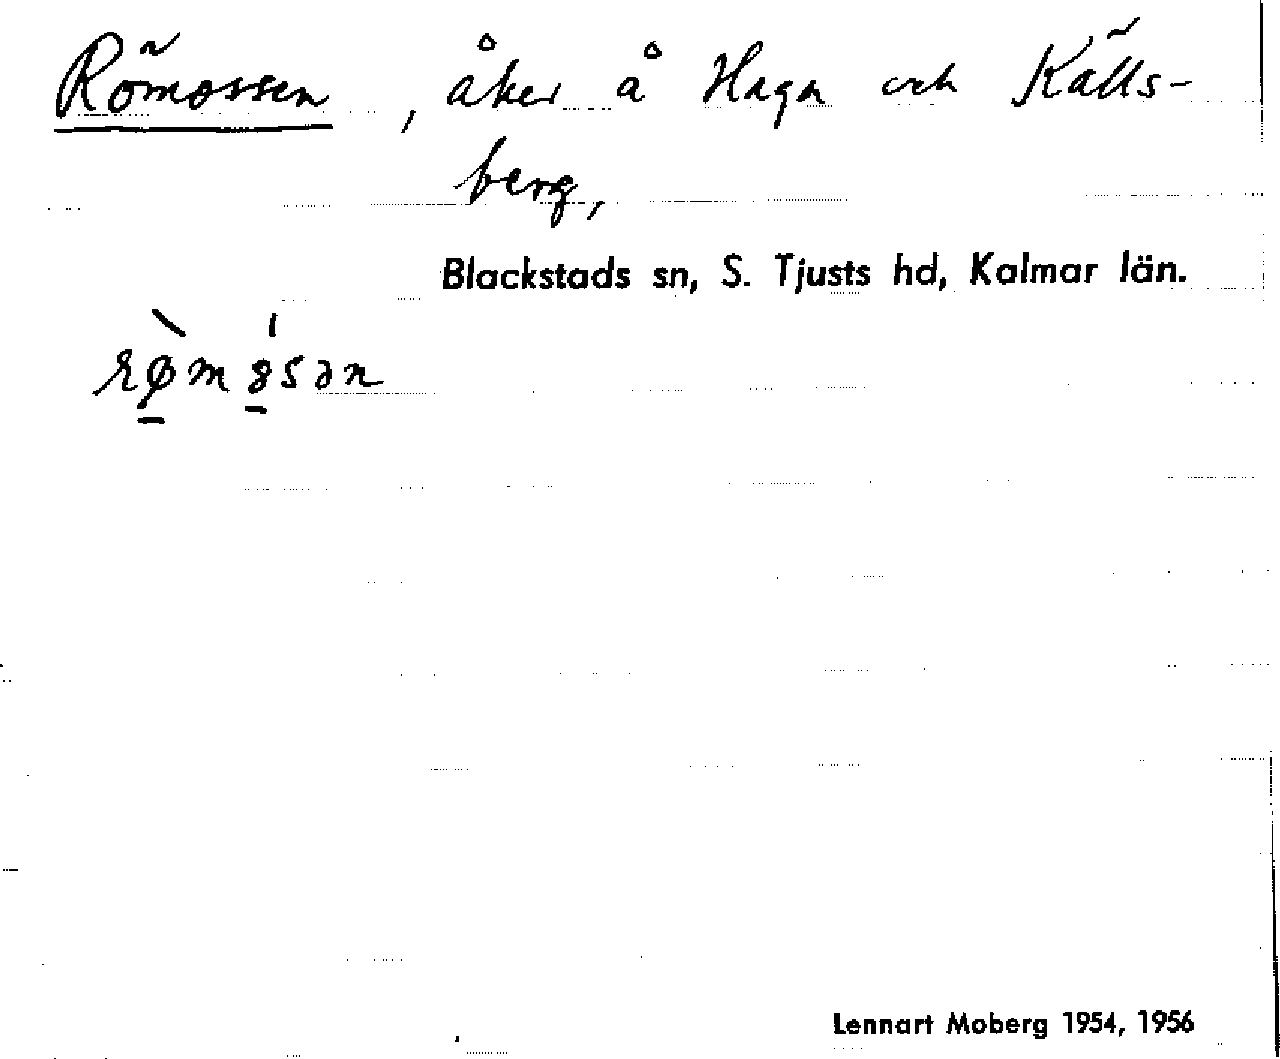 Römossen, åker å Haga och Källs-
berg,
Blackstads sn, S. Tjusts hd, Kalmar län.
Lennart Moberg 1954, 1956